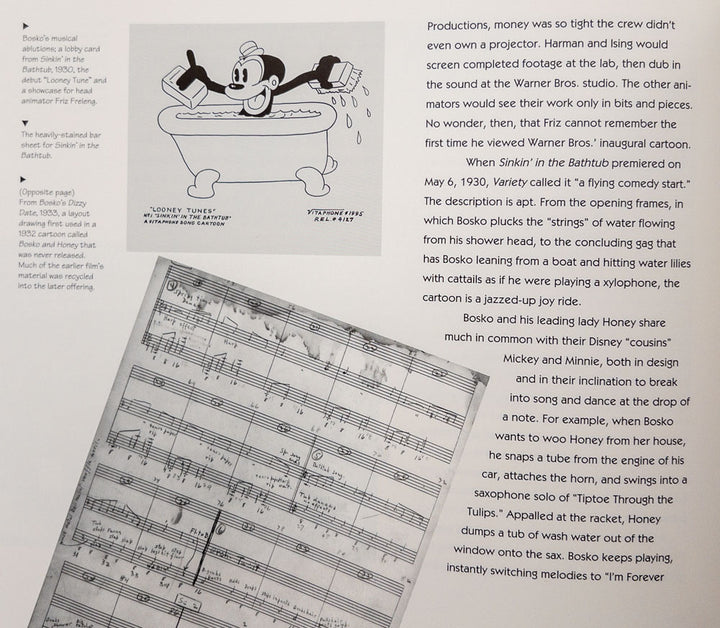 Bosko's musical
ablutions; a lobby card
from Sinkin' in the
Bathtub, 1930, the
debut "Looney Tune" and
a showcase for head
animator Friz Freleng.
The heavily-stained bar
sheet for Sinkin' in the
Bathtub.
(Opposite page)
From Bosko's Dizzy
Date, 1933, a layout
drawing first used in a
1932 cartoon called
Bosko and Honey that
was never released.
Much of the earlier film's
material was recycled
into the later offering.
"LOONEY TUNES"
№1 "SINKIN' IN THE BATHTUB"
A VITAPHONE SONG CARTOON
VITAPHONE #1995
REL. #4127
Productions, money was so tight the crew didn't
even own a projector. Harman and Ising would
screen completed footage at the lab, then dub in
the sound at the Warner Bros. studio. The other ani-
mators would see their work only in bits and pieces.
No wonder, then, that Friz cannot remember the
first time he viewed Warner Bros.' inaugural cartoon.
When Sinkin' in the Bathtub premiered on
May 6, 1930, Variety called it "a flying comedy start."
The description is apt. From the opening frames, in
which Bosko plucks the "strings" of water flowing
from his shower head, to the concluding gag that
has Bosko leaning from a boat and hitting water lilies
with cattails as if he were playing a xylophone, the
cartoon is a jazzed-up joy ride.
Bosko and his leading lady Honey share
much in common with their Disney "cousins"
Mickey and Minnie, both in design
and in their inclination to break
into song and dance at the drop of
a note. For example, when Bosko
wants to woo Honey from her house,
he snaps a tube from the engine of his
car, attaches the horn, and swings into a
saxophone solo of "Tiptoe Through the
Tulips." Appalled at the racket, Honey
dumps a tub of wash water out of the
window onto the sax. Bosko keeps playing,
instantly switching melodies to "I'm Forever